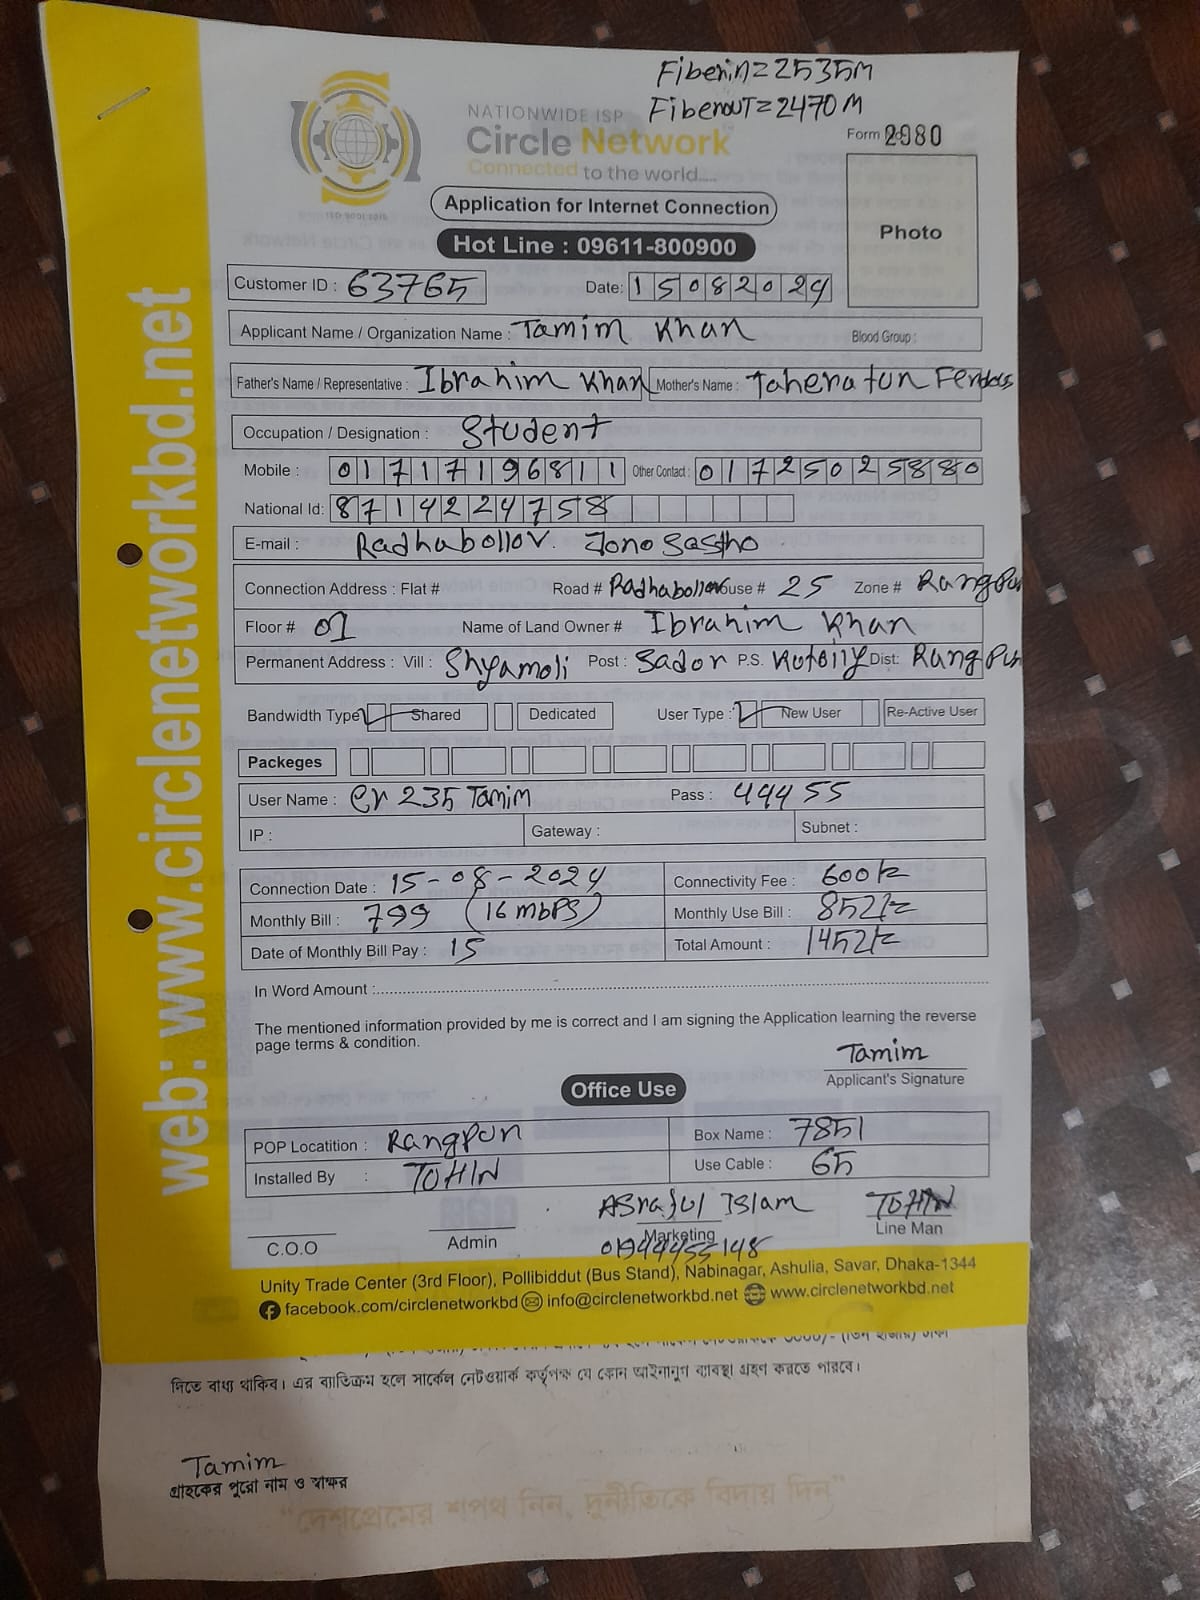 Fiberin=2535M
Fiberout=2470M
NATIONWIDE ISP
Circle Network
Connected to the world....
ISO 9001:2015
Form 2980
Application for Internet Connection
Hot Line : 09611-800900
Photo
Customer ID : 63765 Date: 15082024
Applicant Name / Organization Name : Tamim Khan Blood Group :
Father's Name / Representative : Ibrahim Khan Mother's Name : Taheratun Ferdos
Occupation / Designation : Student
Mobile : 01717196811 Other Contact : 01725025880
National Id: 8714224758
E-mail : Radhabollov. Jono Sastho
Connection Address : Flat # Road # Radhabollov House # 25 Zone # Rangpur
Floor # 01 Name of Land Owner # Ibrahim Khan
Permanent Address : Vill : Shyamoli Post : Sador P.S. Kotoily Dist: Rangpur
Bandwidth Type Shared Dedicated User Type : New User Re-Active User
Packeges
User Name : cr 235 Tamim Pass : 44455
IP : Gateway : Subnet :
Connection Date : 15-08-2024 Connectivity Fee : 600/=
Monthly Bill : 799 (16 mbps) Monthly Use Bill : 852/=
Date of Monthly Bill Pay : 15 Total Amount : 1452/=
In Word Amount :
The mentioned information provided by me is correct and I am signing the Application learning the reverse
page terms & condition.
Tamim
Applicant's Signature
Office Use
POP Locatition : Rangpur Box Name : 7851
Installed By : TOHIN Use Cable : 65
Asraful Islam TOHIN
C.O.O Admin Marketing Line Man
01944455148
Unity Trade Center (3rd Floor), Pollibiddut (Bus Stand), Nabinagar, Ashulia, Savar, Dhaka-1344
facebook.com/circlenetworkbd info@circlenetworkbd.net www.circlenetworkbd.net
web: www.circlenetworkbd.net
দিতে বাধ্য থাকিব। এর ব্যতিক্রম হলে সার্কেল নেটওয়ার্ক কর্তৃপক্ষ যে কোন আইনানুগ ব্যবস্থা গ্রহণ করতে পারবে।
Tamim
গ্রাহকের পুরো নাম ও স্বাক্ষর
“দেশপ্রেমের শপথ নিন, দুর্নীতিকে বিদায় দিন”